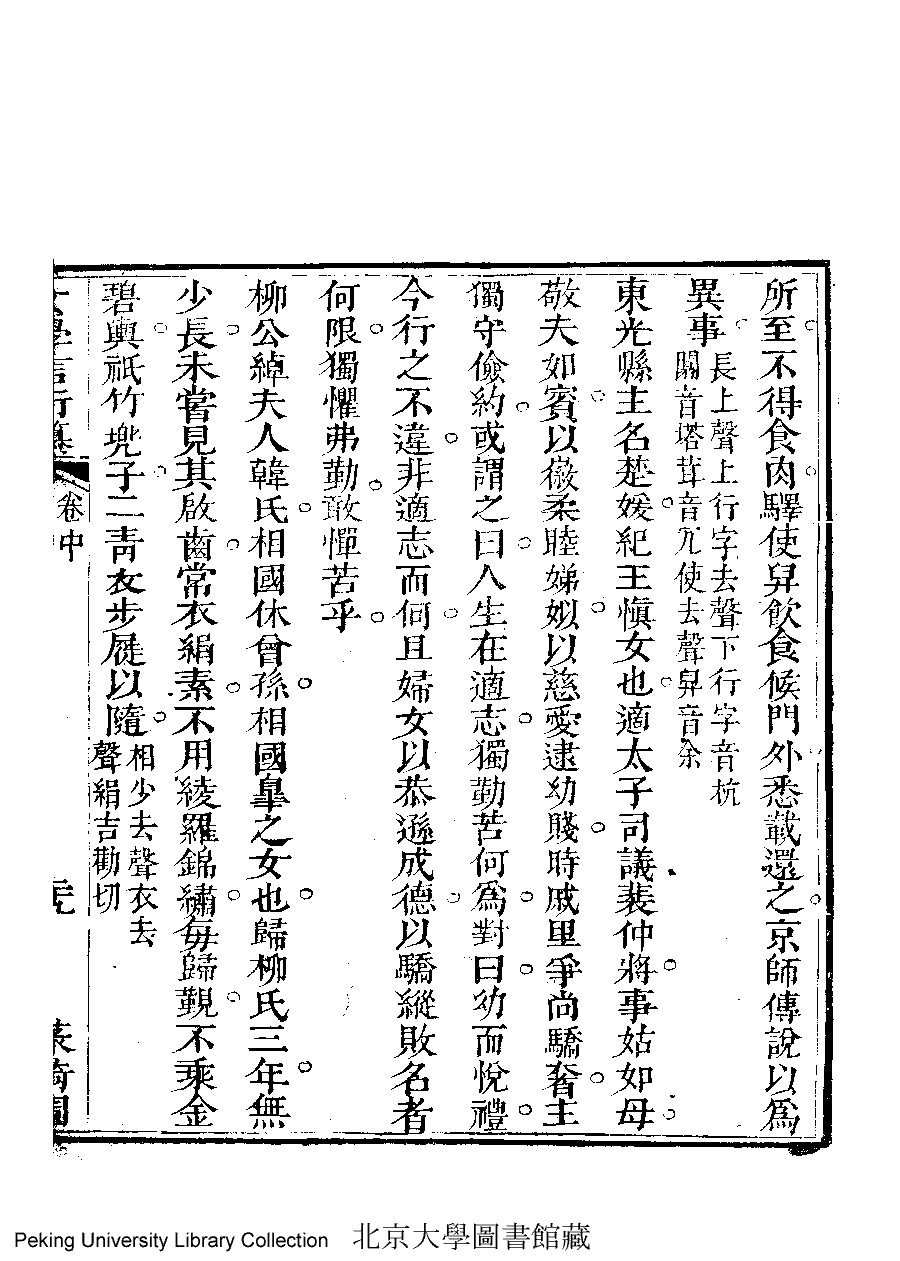 所至不得食肉驛使舁飲食候門外悉載還之京師傳說以爲
異事
長上聲上行字去聲下行字音杭
闒音塔茸音冗使去聲舁音余
東光縣主名楚媛紀王愼女也適太子司議裴仲將事姑如母
敬夫如賓以徽柔睦娣姒以慈愛逮幼賤時戚里爭尚驕奢主
獨守儉約或謂之曰人生在適志獨勤苦何爲對曰幼而悅禮
今行之不違非適志而何且婦女以恭遜成德以驕縱敗名者
何限獨懼弗勤敢憚苦乎
柳公綽夫人韓氏相國休曾孫相國臯之女也歸柳氏三年無
少長未嘗見其啟齒常衣絹素不用綾羅錦繡每歸覲不乘金
碧輿祇竹兠子二青衣步屣以隨
相少去聲衣去
聲絹吉勸切
言行
卷中